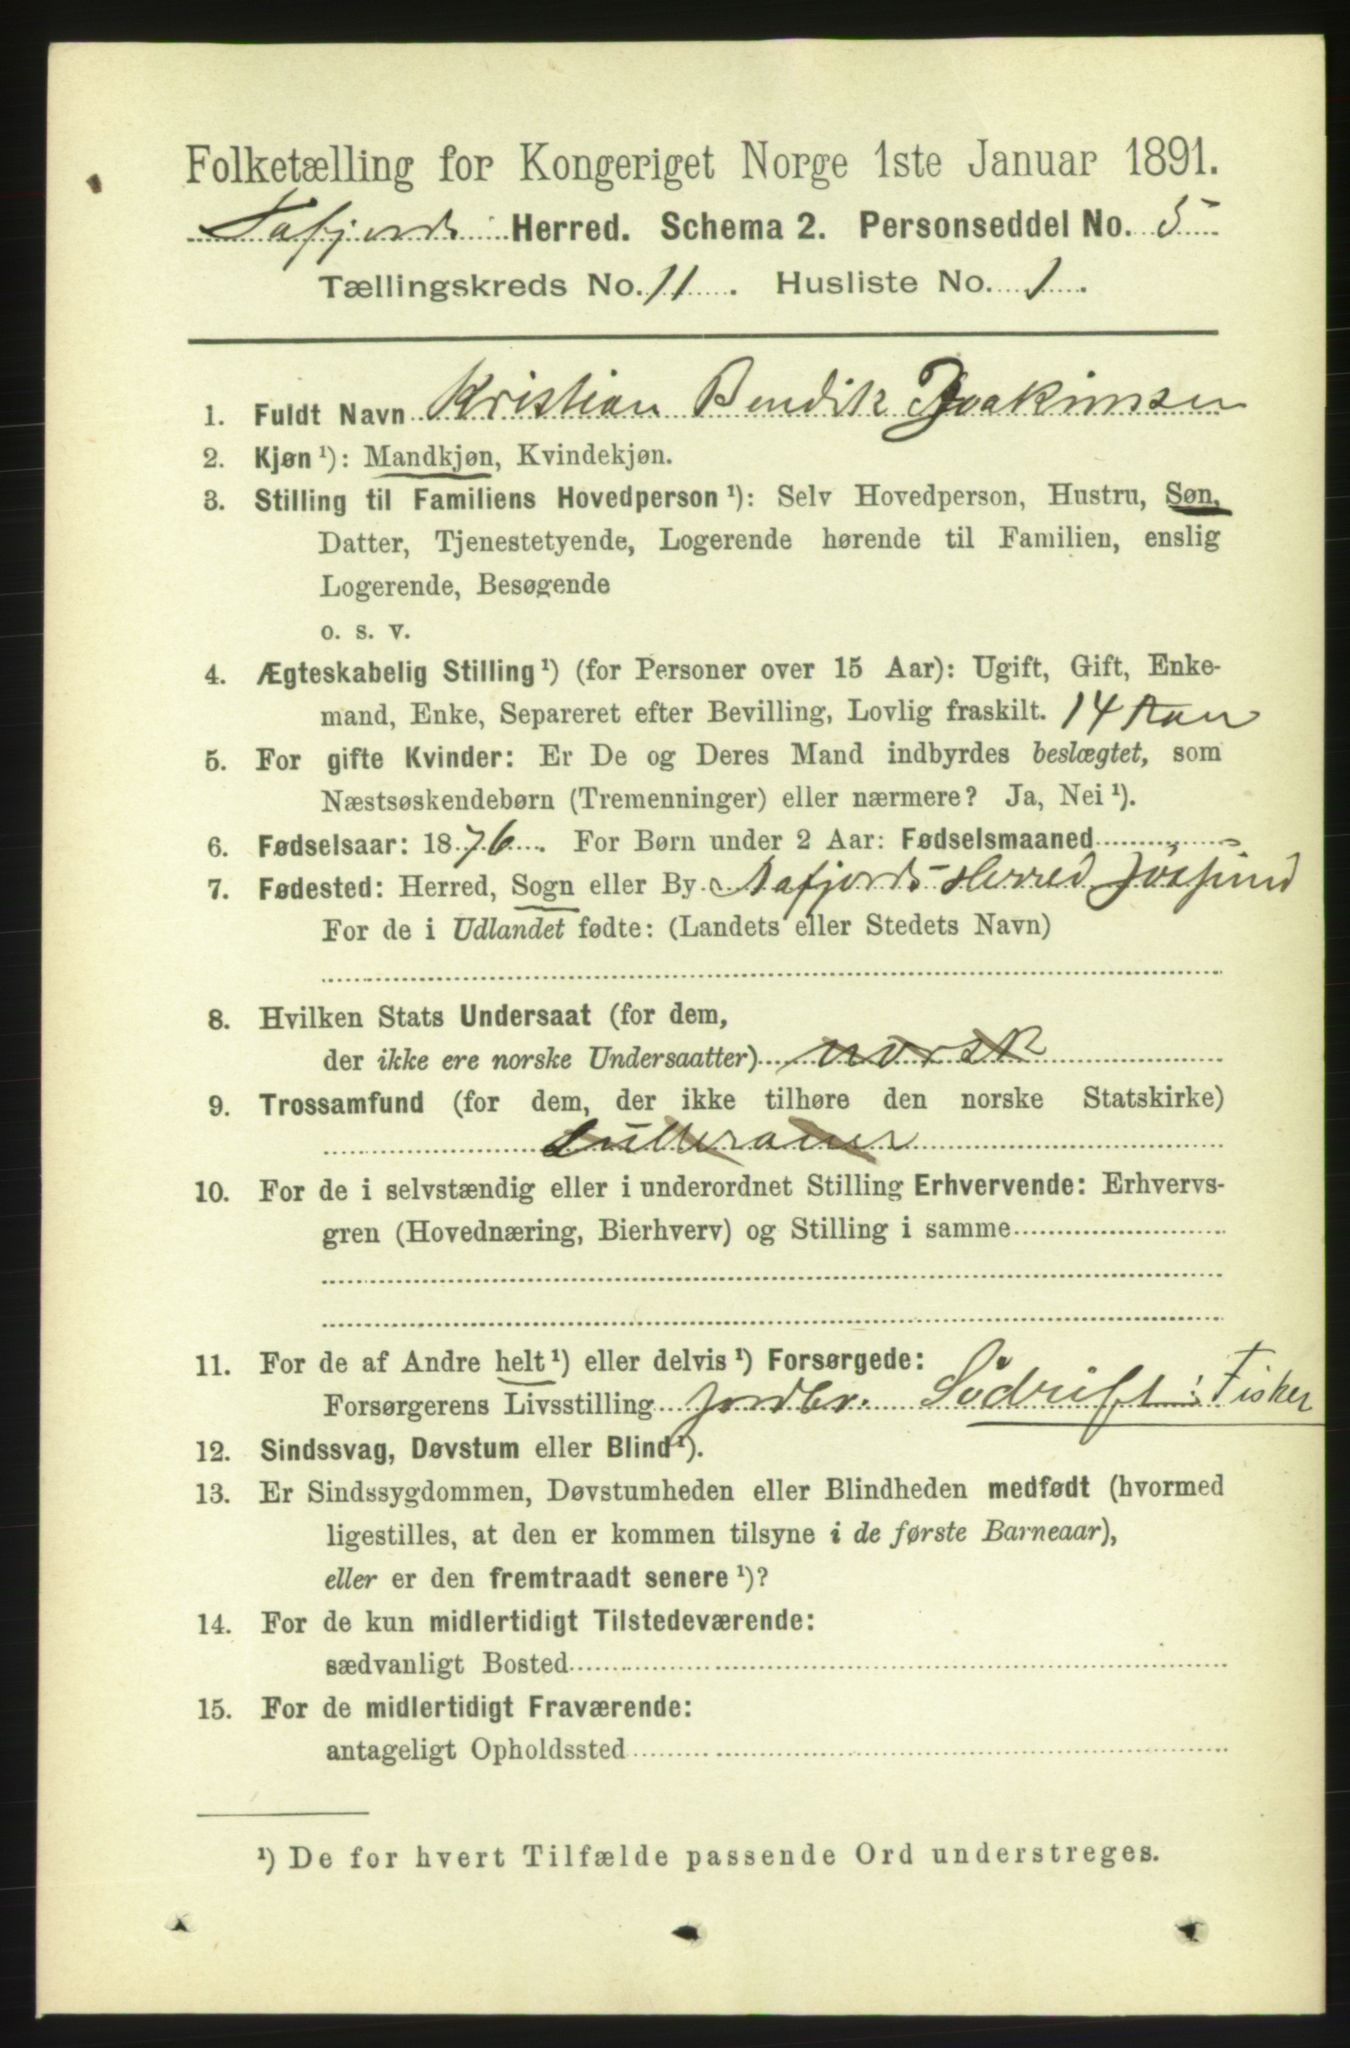 Folketælling for Kongeriget Norge 1ste Januar 1891.
Herred. Schema 2. Personseddel No. 5
Tællingskreds No. 11. Husliste No. 1.
1. Fuldt Navn Kristian Bendik Joakimsen
2. Kjøn ¹): Mandkjøn, Kvindekjøn.
3. Stilling til Familiens Hovedperson ¹): Selv Hovedperson, Hustru, Søn,
Datter, Tjenestetyende, Logerende hørende til Familien, enslig
Logerende, Besøgende
o. s. v.
4. Ægteskabelig Stilling ¹) (for Personer over 15 Aar): Ugift, Gift, Enke-
mand, Enke, Separeret efter Bevilling, Lovlig fraskilt. 14 Aar
5. For gifte Kvinder: Er De og Deres Mand indbyrdes beslægtet, som
Næstsøskendebørn (Tremenninger) eller nærmere? Ja, Nei ¹).
6. Fødselsaar: 1876. For Børn under 2 Aar: Fødselsmaaned
7. Fødested: Herred, Sogn eller By Aafjords Herred Jøssund
For de i Udlandet fødte: (Landets eller Stedets Navn)
8. Hvilken Stats Undersaat (for dem,
der ikke ere norske Undersaatter) norsk
9. Trossamfund (for dem, der ikke tilhøre den norske Statskirke)
10. For de i selvstændig eller i underordnet Stilling Erhvervende: Erhvervs-
gren (Hovednæring, Bierhverv) og Stilling i samme
11. For de af Andre helt ¹) eller delvis ¹) Forsørgede:
Forsørgerens Livsstilling Jordbr. Södrift: Fisker
12. Sindssvag, Døvstum eller Blind ¹).
13. Er Sindssygdommen, Døvstumheden eller Blindheden medfødt (hvormed
ligestilles, at den er kommen tilsyne i de første Barneaar),
eller er den fremtraadt senere ¹)?
14. For de kun midlertidigt Tilstedeværende:
sædvanligt Bosted
15. For de midlertidigt Fraværende:
antageligt Opholdssted
¹) De for hvert Tilfælde passende Ord understreges.